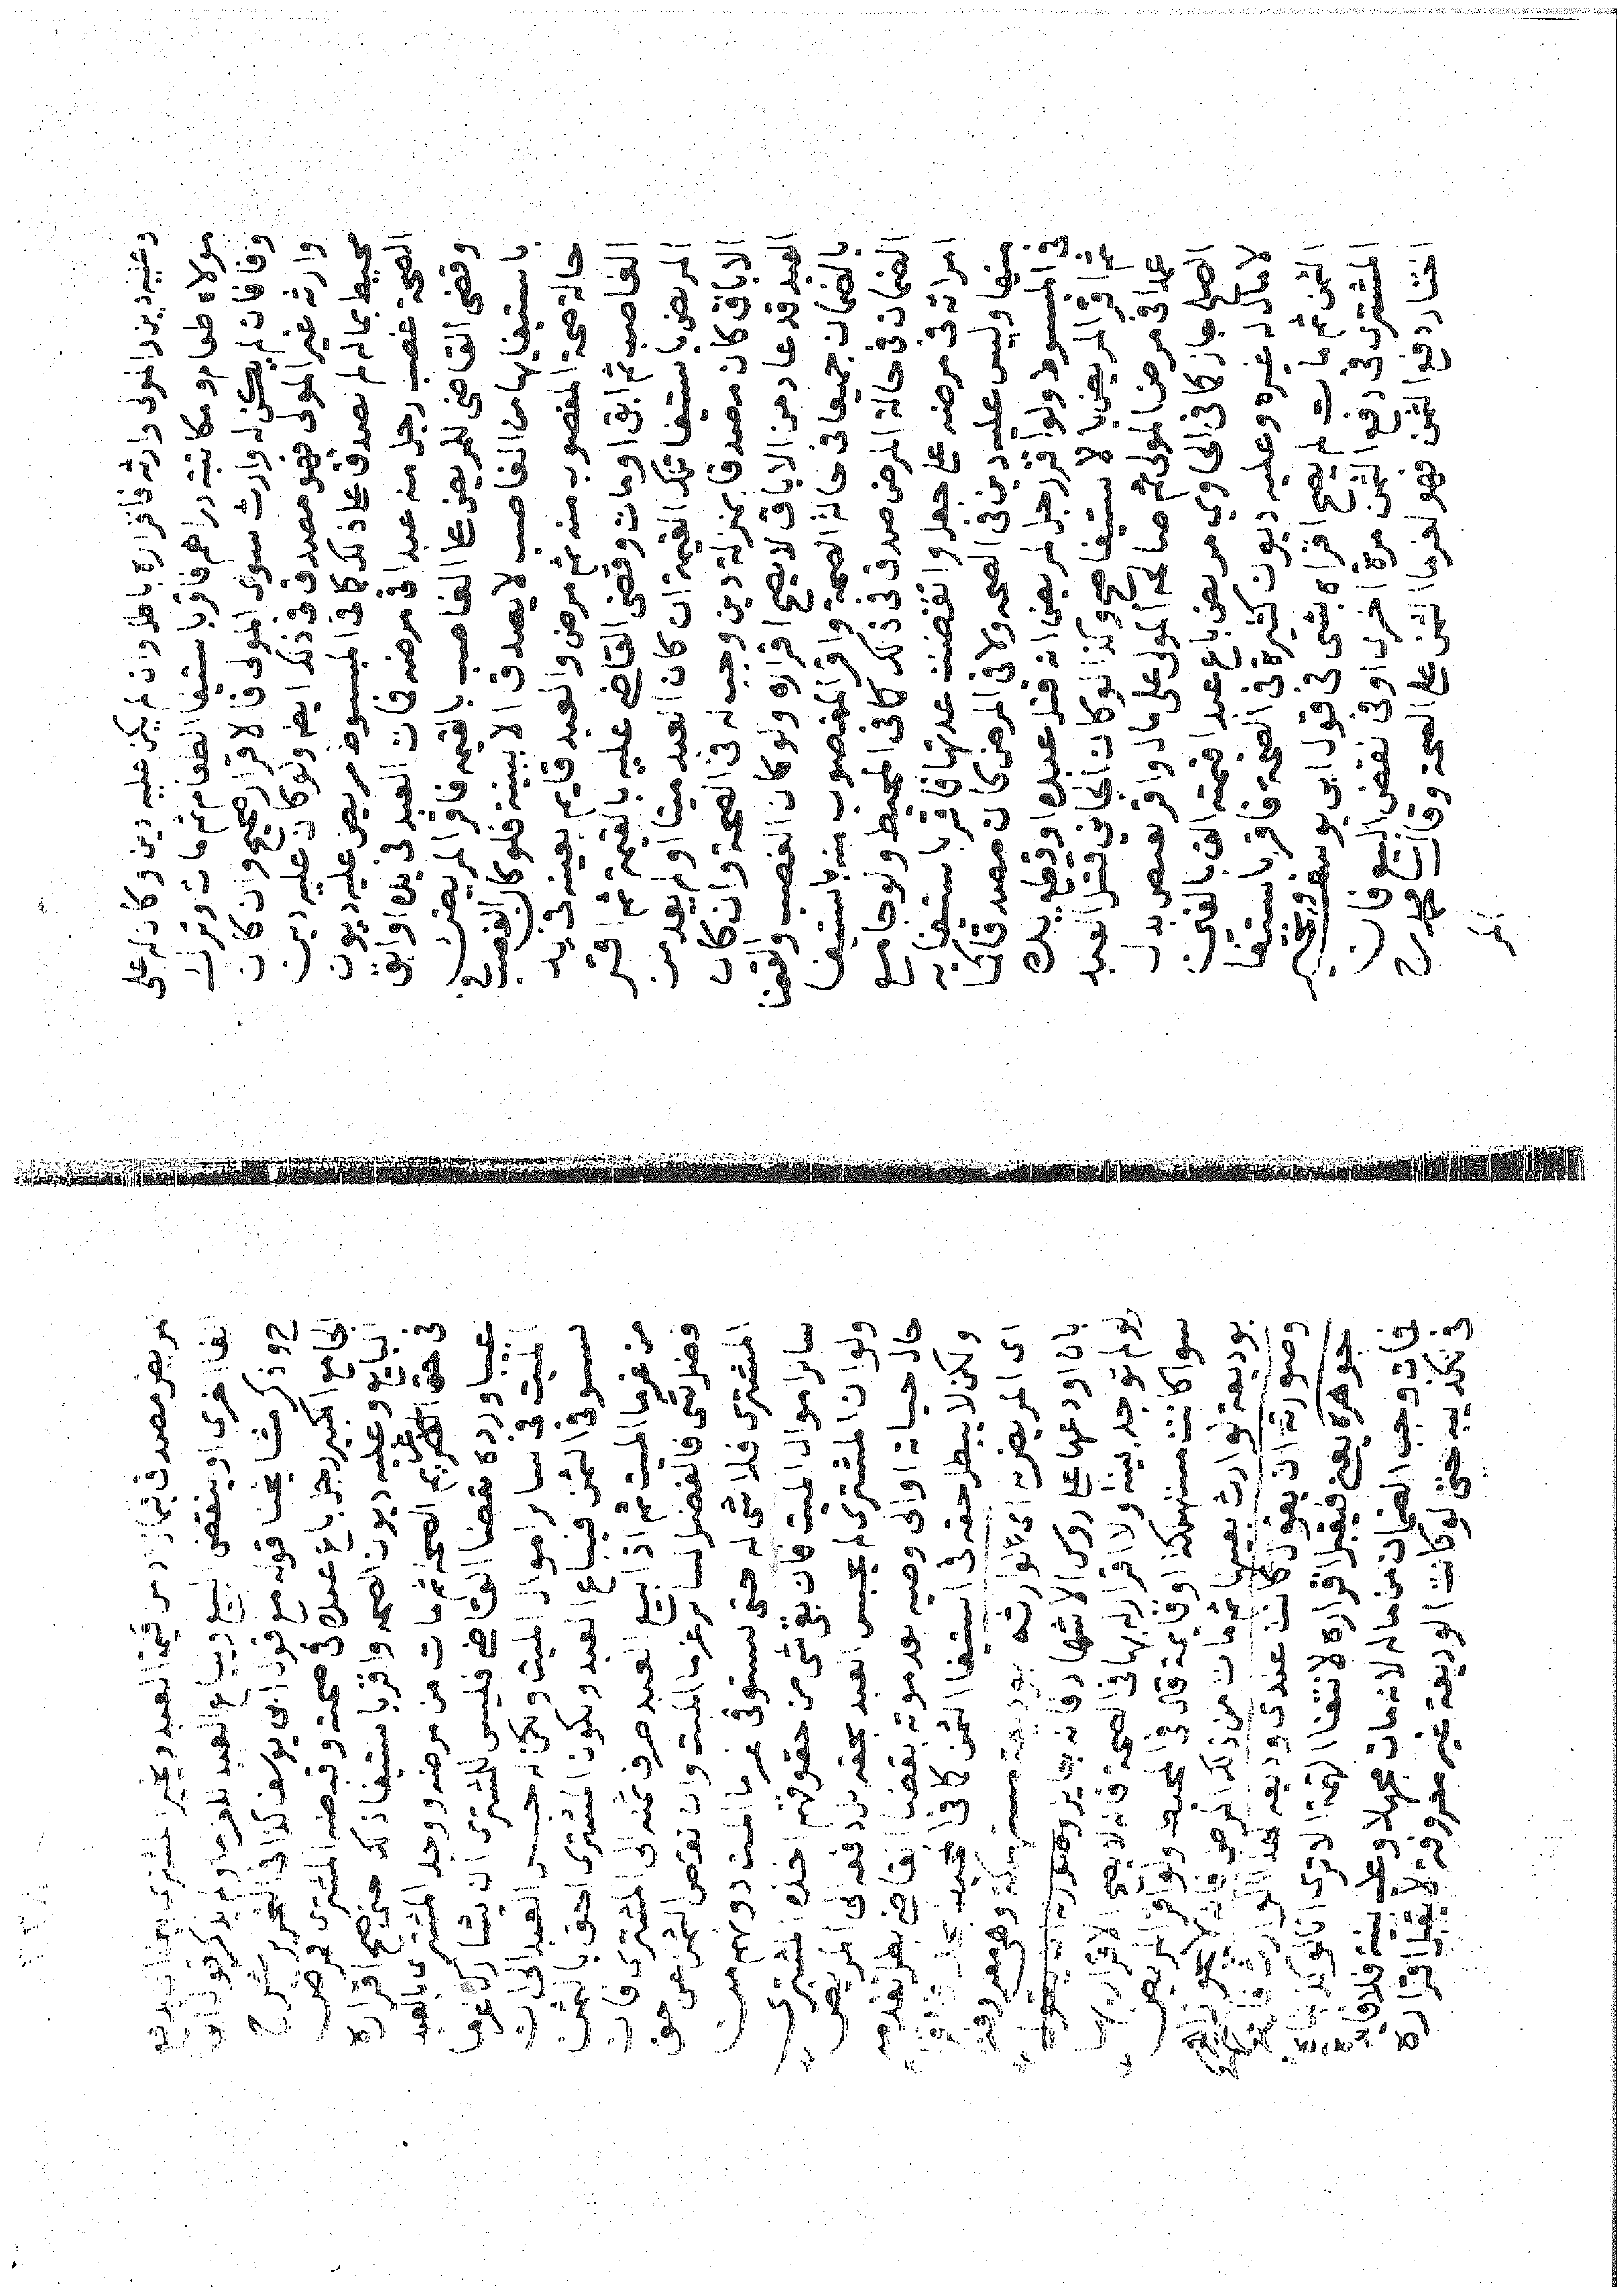 وعليه دين والمولى وارثه فاقراره باطل وان لم يكن عليه دين وكان له على
مولاه طعام ومكاتبته دراهم فاقر باستيفا الطعام ثم مات وترك
وفا فان لم يكن له وارث سوى المولى فالاقرار صحيح وان كان
وارثه غير المولى فهو مصدق في ذلك ايض ولو كان عليه دين
محيط بماله لم يصدق على ذلك كما في المبسوط مريض عليه ديون
الصحة غصب رجل منه عبدا في مرضه فمات العبد في يده او ابق
وقضى القاضي للمريض على الغاصب بالقيمة فاقر المريض
باستيفايها من الغاصب لا يصدق الا ببينة فلو كان الغصب في
حالة صحة المغصوب منه ثم مرض والعبد قايم بعينه في يد
الغاصب ثم ابق او مات وقضى القاضي عليه بالقيمة ثم اقر
المريض باستيفا تلك القيمة ان كان العبد ميتا او لم يعد من
الاباق كان مصدقا بمنزلة دين وجب له في الصحة وان كان
العبد قد عاد من الاباق لا يصح اقراره ولو كان الغصب والقضا
بالضمان جميعا في حالة الصحة واقر المغصوب منه باستيفا
الضمان في حالة المرض صدق في ذلك كما في المحيط ولو جامع
امراته في مرضه على جعل وانقضت عدتها فاقر باستيفايه
منها وليس عليه دين في الصحه ولا في المرض كان مصدقا كما
في المبسوط ولو اقر رجل لمريض انه قتل عبده او قطع يده
ثم اقر المريض بالاستيفا صح وكذا لو كان الجاني قتل العبد
عمدا في مرض المولى ثم صالحه المولى على مال واقر بقبض بدل
الصلح جاز كما في الحاوي مريض باع عبدا قيمته الف بالفين
لا مال له غيره وعليه ديون كثيرة في الصحة فاقر باستيفا
الثمن ثم مات لم يصح اقراره بشي في قول ابي يوسف ويخير
المشتري في دفع الثمن مرة اخرى او في نقض البيع فان
اختار دفع الثمن فهو لغرما الثمن على الصحة وقال محمد رح
المر
مريض مصدق فيما زاد من قيمة العبد ويخير المشتري
الفا اخرى او ينقض البيع ويباع العبد للغرما ولم يذكر قول ابي
ح وذكر مشايخنا قوله مع قول ابي يوسف كذا في التحرير شرح
الجامع الكبير رجل باع عبده في صحته وقبضه المشتري فمرض
البايع وعليه ديون الصحه واقر باستيفا ذلك حتى صح اقراره
في حق غريم الصحة ثم مات من مرضه ووجد المشتري بالعبد
عيبا ورده بقضا القاضي فليس للمشتري ان يشارك غرما
الميت في ساير اموال الميت ولكن له حبس العبد الى ان
يستوفي الثمن فيباع العبد ويكون المشتري احق بالثمن
من غرما الميت ثم اذا بيع العبد صرف ثمنه الى المشتري فان
فضل شي فالفضل لساير غرما الميت وان نقص الثمن عن حق
المشتري فلا شي له حتى يستوفي غرما الميت ديونهم من
ساير اموال الميت فان بقي شي من حقوقهم اخذه المشتري
ولو ان المشتري لم يحبس العبد بحقه بل دفعه الى المريض
حال حياته او الى وصيه بعد موته بقضا القاضي بطل تقدمه
ولكن لا يبطل حقه في استيفا الثمن كما في
اي المريض اي لوارثه بوديعة مستهلكة وهي معروفة
بان اودعها على روس الاشهاد فانه جايز وصورته
لو لم توجد بينة ولا اقراره بها في الصحة فانه لا يصح الاقرار بها
سوا كانت مستهلكة او قايمة قال في المحيط ولو اقر المريض
بوديعة لوارث بعينها ثم مات من ذلك المرض فانه لا يجوز
وصورته ان يقول كانت عندي وديعه لهذا الوارث
جوهرة يعني فيقبل اقراره لانتفا التهمة الا ترى انا لو كذبناه
فمات وجب الضمان من ماله لانه مات مجهلا وعليه بينة فلا فايدة
في تكذيبه حتى لو كانت الوديعة غير معروفة لا يقبل اقراره